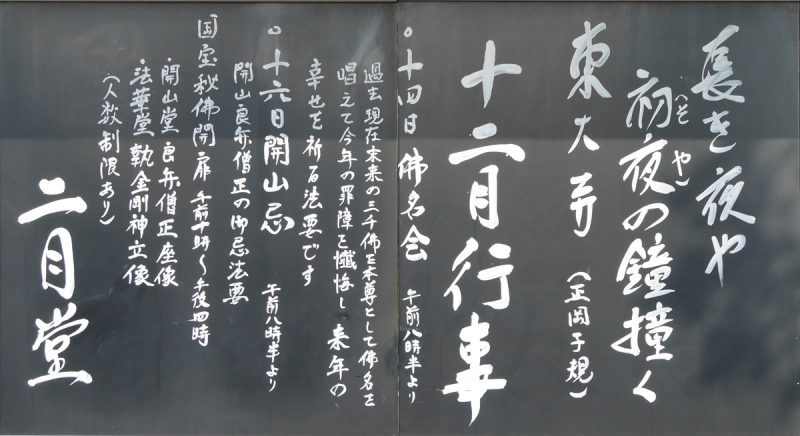 長き夜や
初夜の鐘撞く
(そや)
東大寺
(正岡子規)
十二月行事
○十四日 佛名会 午前八時半より
過去現在未来の三千佛を本尊として佛名を
唱えて今年の罪障を懺悔し 来年の
幸せを祈る法要です
○十六日開山忌 午前八時半より
開山良弁僧正の御忌法要
国宝秘佛開扉 午前十時〜午後四時
・開山堂 良弁僧正座像
・法華堂 執金剛神立像
(人数制限あり)
二月堂